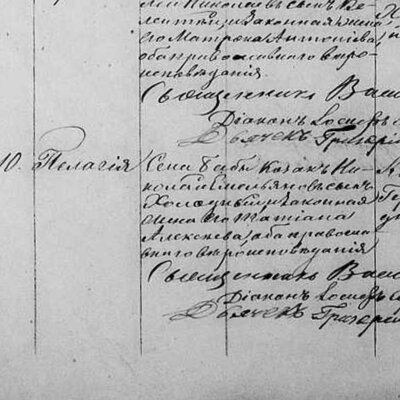 лентій и законная жена
его Матрона Антоніева,
оба православнаго вѣро-
исповѣданія.
Священникъ Васи
Діаконъ Іосифъ
Дьячекъ Григорій
10. Пелагія Села Бабы Козакъ Ни-
колай Емельяновъ сынъ
и законная
жена его Татіана
Алексѣева, оба правосла-
внаго вѣроисповѣданія
Священникъ Васи
Діаконъ Іосифъ
Дьячекъ Григорій